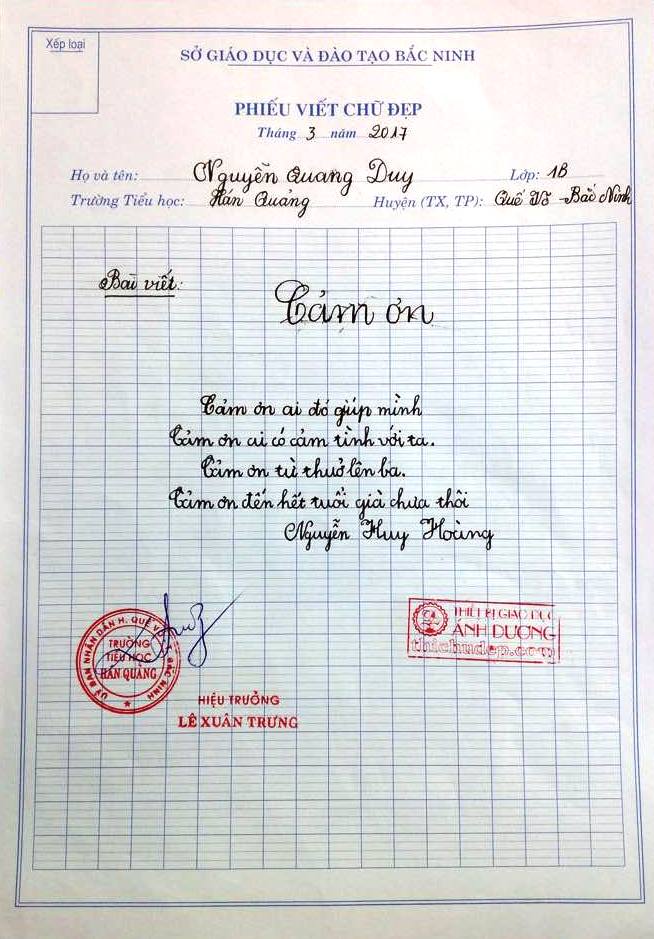 Xếp loại
SỞ GIÁO DỤC VÀ ĐÀO TẠO BẮC NINH
PHIẾU VIẾT CHỮ ĐẸP
Tháng 3 năm 2017
Họ và tên: Nguyễn Quang Duy Lớp: 1B
Trường Tiểu học: Hán Quảng Huyện (TX, TP): Quế Võ - Bắc Ninh
Bài viết:
Cảm ơn
Cảm ơn ai đó giúp mình
Cảm ơn ai có cảm tình với ta.
Cảm ơn từ thuở lên ba.
Cảm ơn đến hết tuổi già chưa thôi
Nguyễn Huy Hoàng
ỦY BAN NHÂN DÂN H. QUẾ VÕ BẮC NINH
TRƯỜNG
TIỂU HỌC
HÁN QUẢNG
HIỆU TRƯỞNG
LÊ XUÂN TRƯNG
THIẾT BỊ GIÁO DỤC
ÁNH DƯƠNG